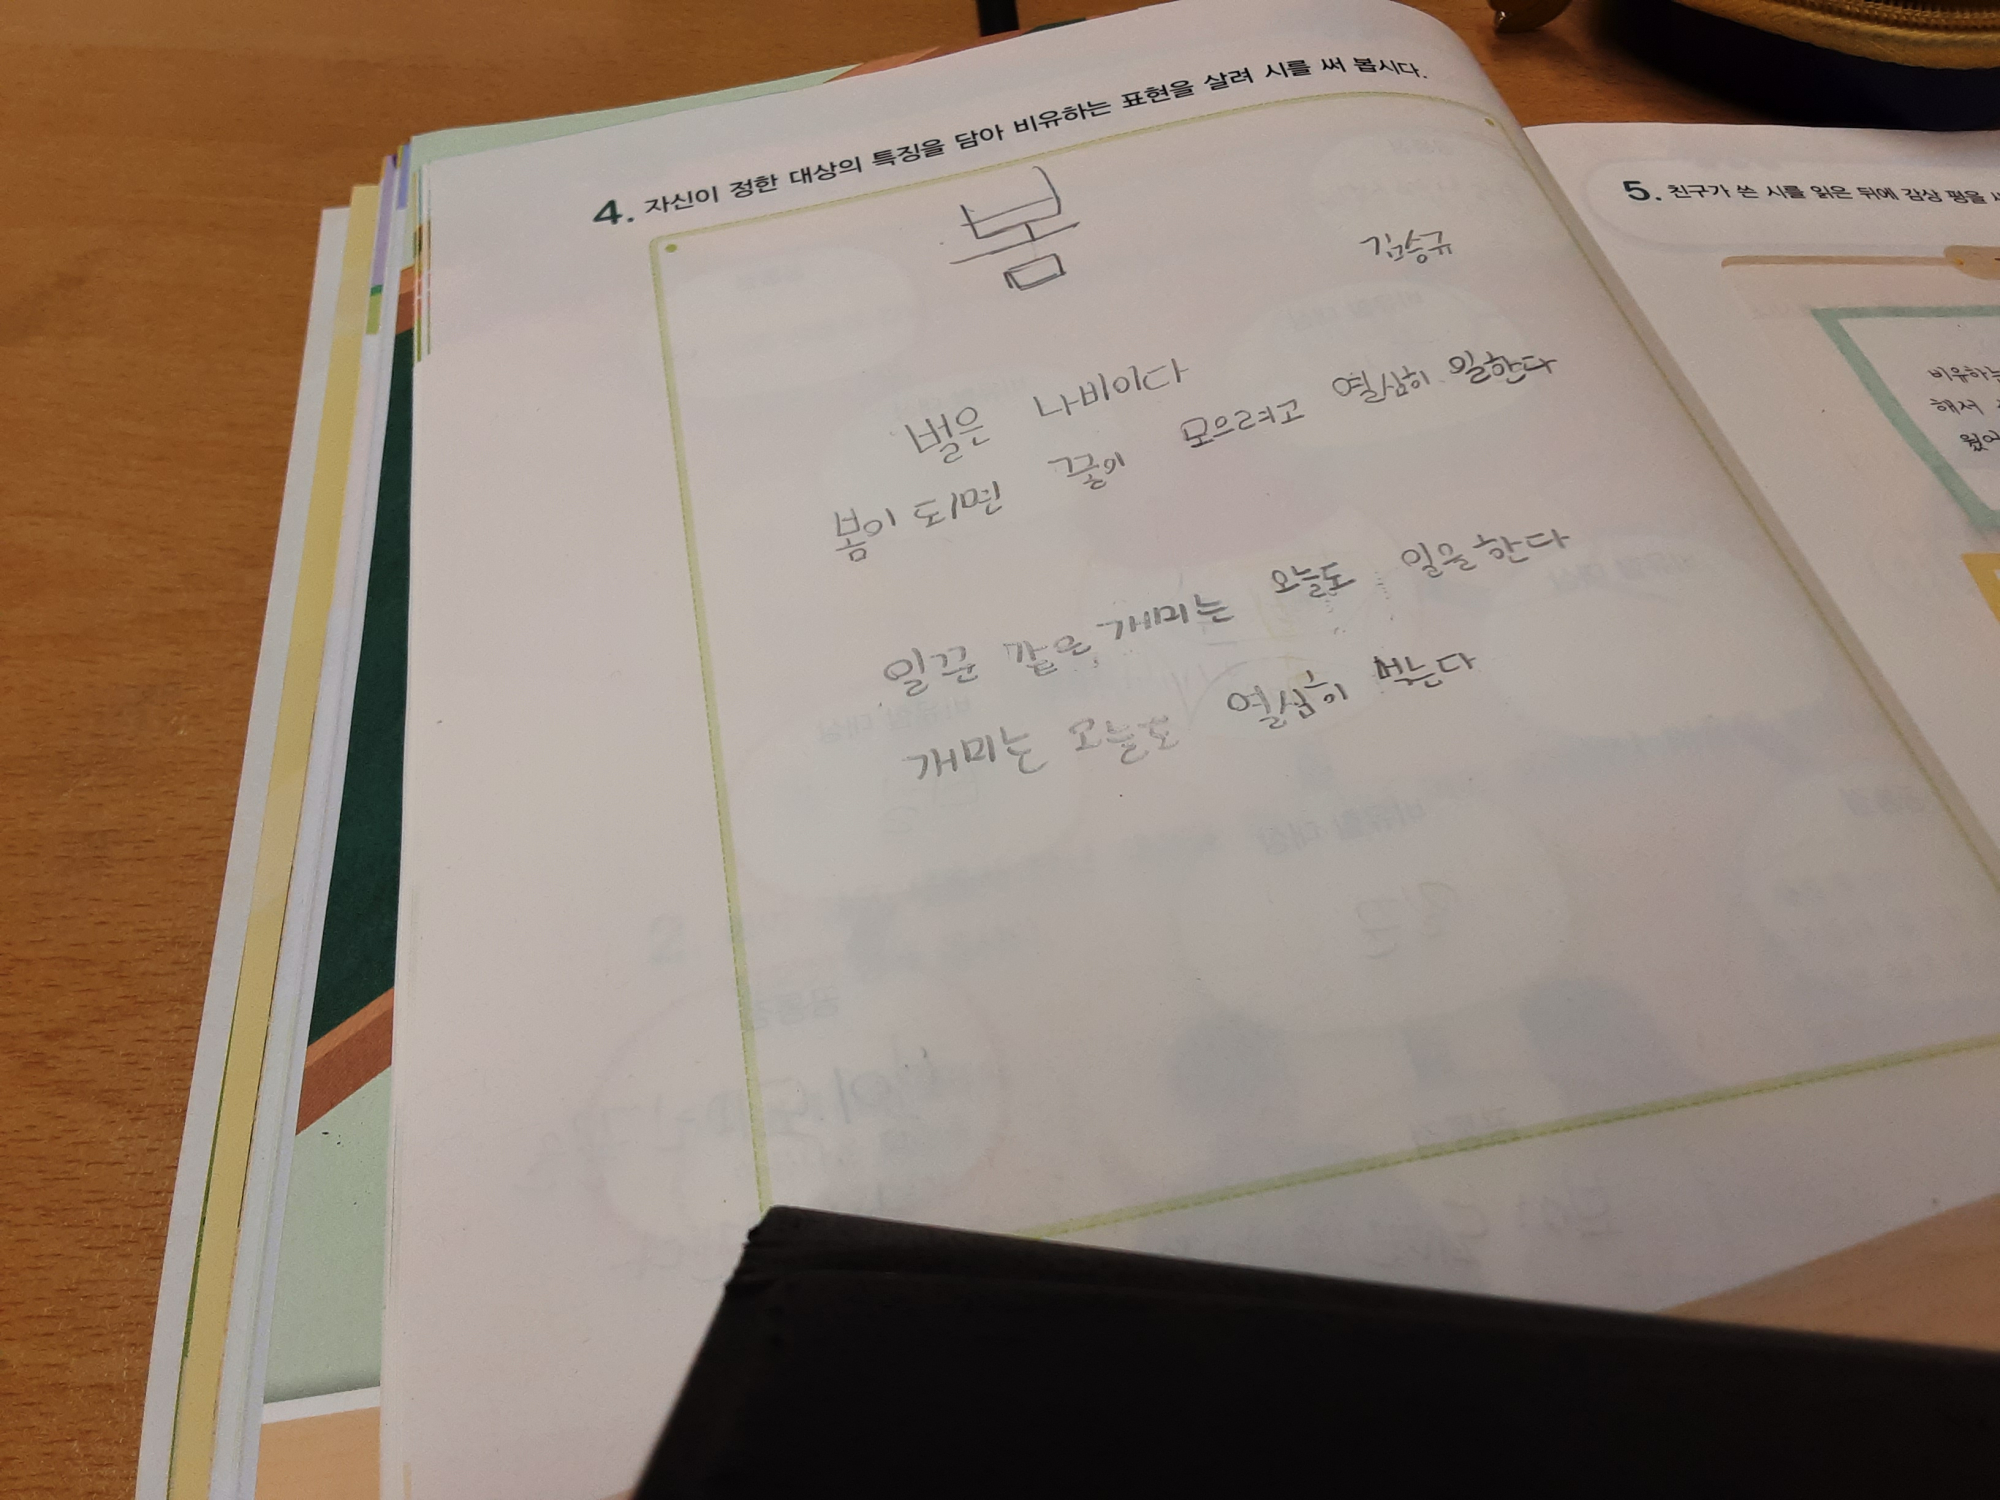 4. 자신이 정한 대상의 특징을 담아 비유하는 표현을 살려 시를 써 봅시다.
봄
김승규
벌은 나비이다
봄이 되면 꿀이 모으려고 열심히 일한다
일꾼 같은 개미는 오늘도 일을 한다
개미는 오늘도 열심히 먹는다
5. 친구가 쓴 시를 읽은 뒤에 감상 평을
비유하는
해서
웠어